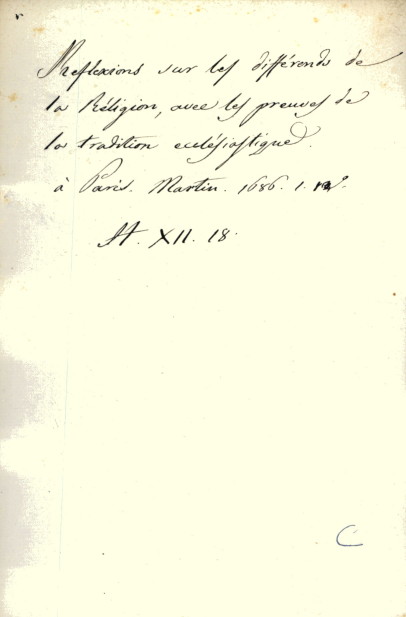 Reflexions sur les différends de
la Réligion, avec les preuves de
la tradition ecclésiastique.
à Paris. Martin. 1686. 1. 12º.
H. XII. 18.
C